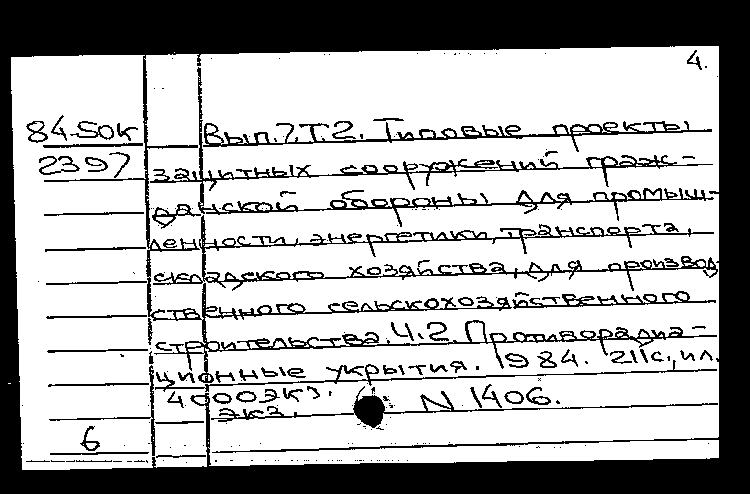 4.
84-50к Вып.7,Т.2. Типовые проекты
2397 защитных сооружений граж-
данской обороны для промыш-
ленности, энергетики, транспорта,
складского хозяйства, для производ-
ственного сельскохозяйственного
строительства. Ч.2. Противорадиа-
ционные укрытия. 1984. 211с., ил.
4000экз.
экз. N 1406.
6